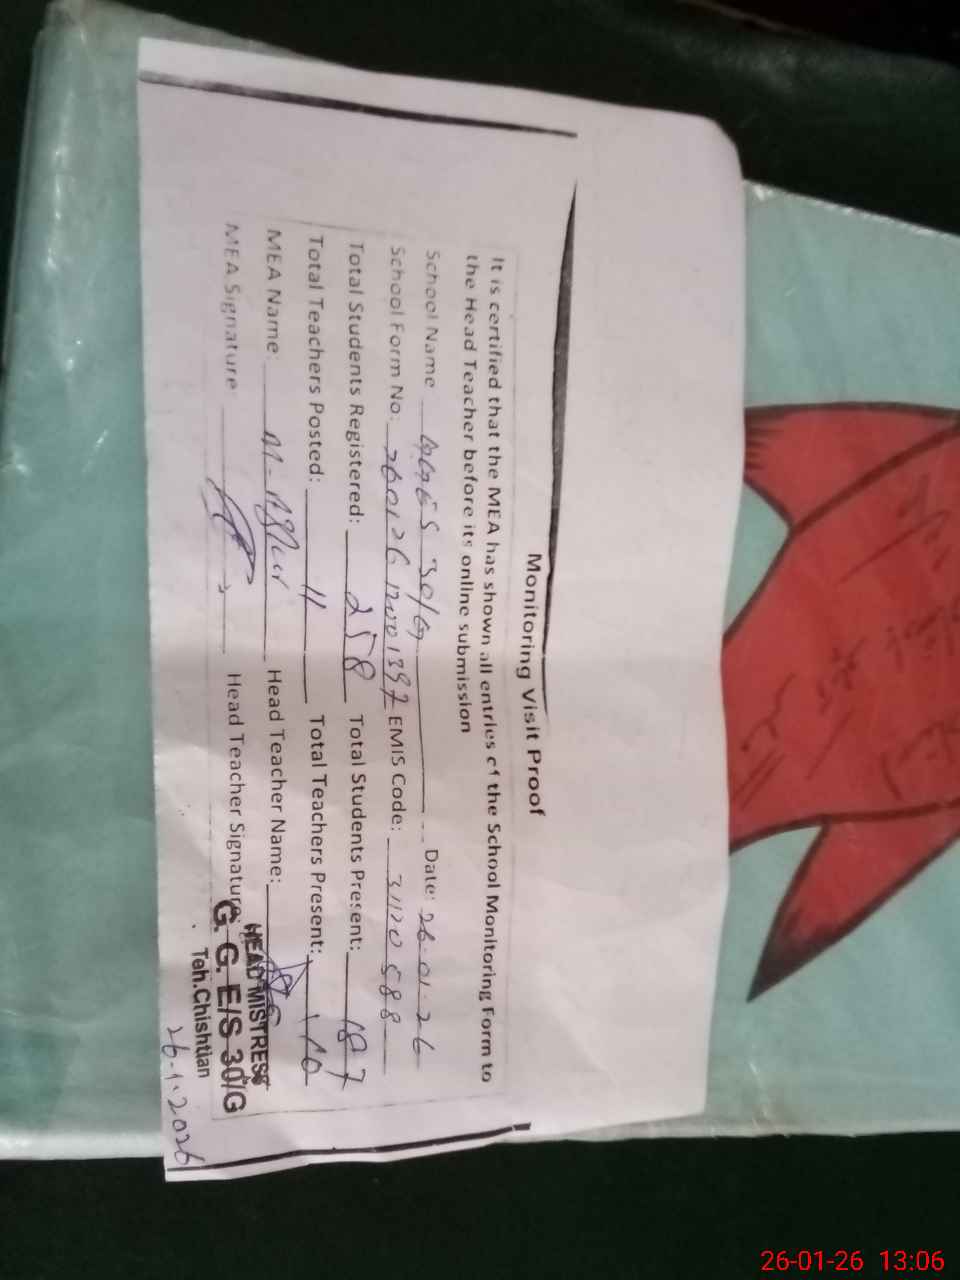 Monitoring Visit Proof
It is certified that the MEA has shown all entries of the School Monitoring Form to
the Head Teacher before its online submission
School Name GGES 30/G Date: 26-01-26
School Form No.: EMIS Code: 31120588
Total Students Registered: 258 Total Students Present: 187
Total Teachers Posted: 11 Total Teachers Present: 10
MEA Name: Head Teacher Name:
MEA Signature Head Teacher Signature:
HEAD MISTRESS
G. G. E/S 30/G
Teh.Chishtian
26-1-2026
26-01-26 13:06